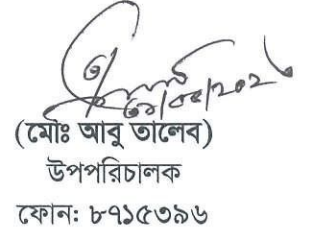 (মোঃ আবু তালেব)
উপপরিচালক
ফোন: ৮৭১৫৩৯৬